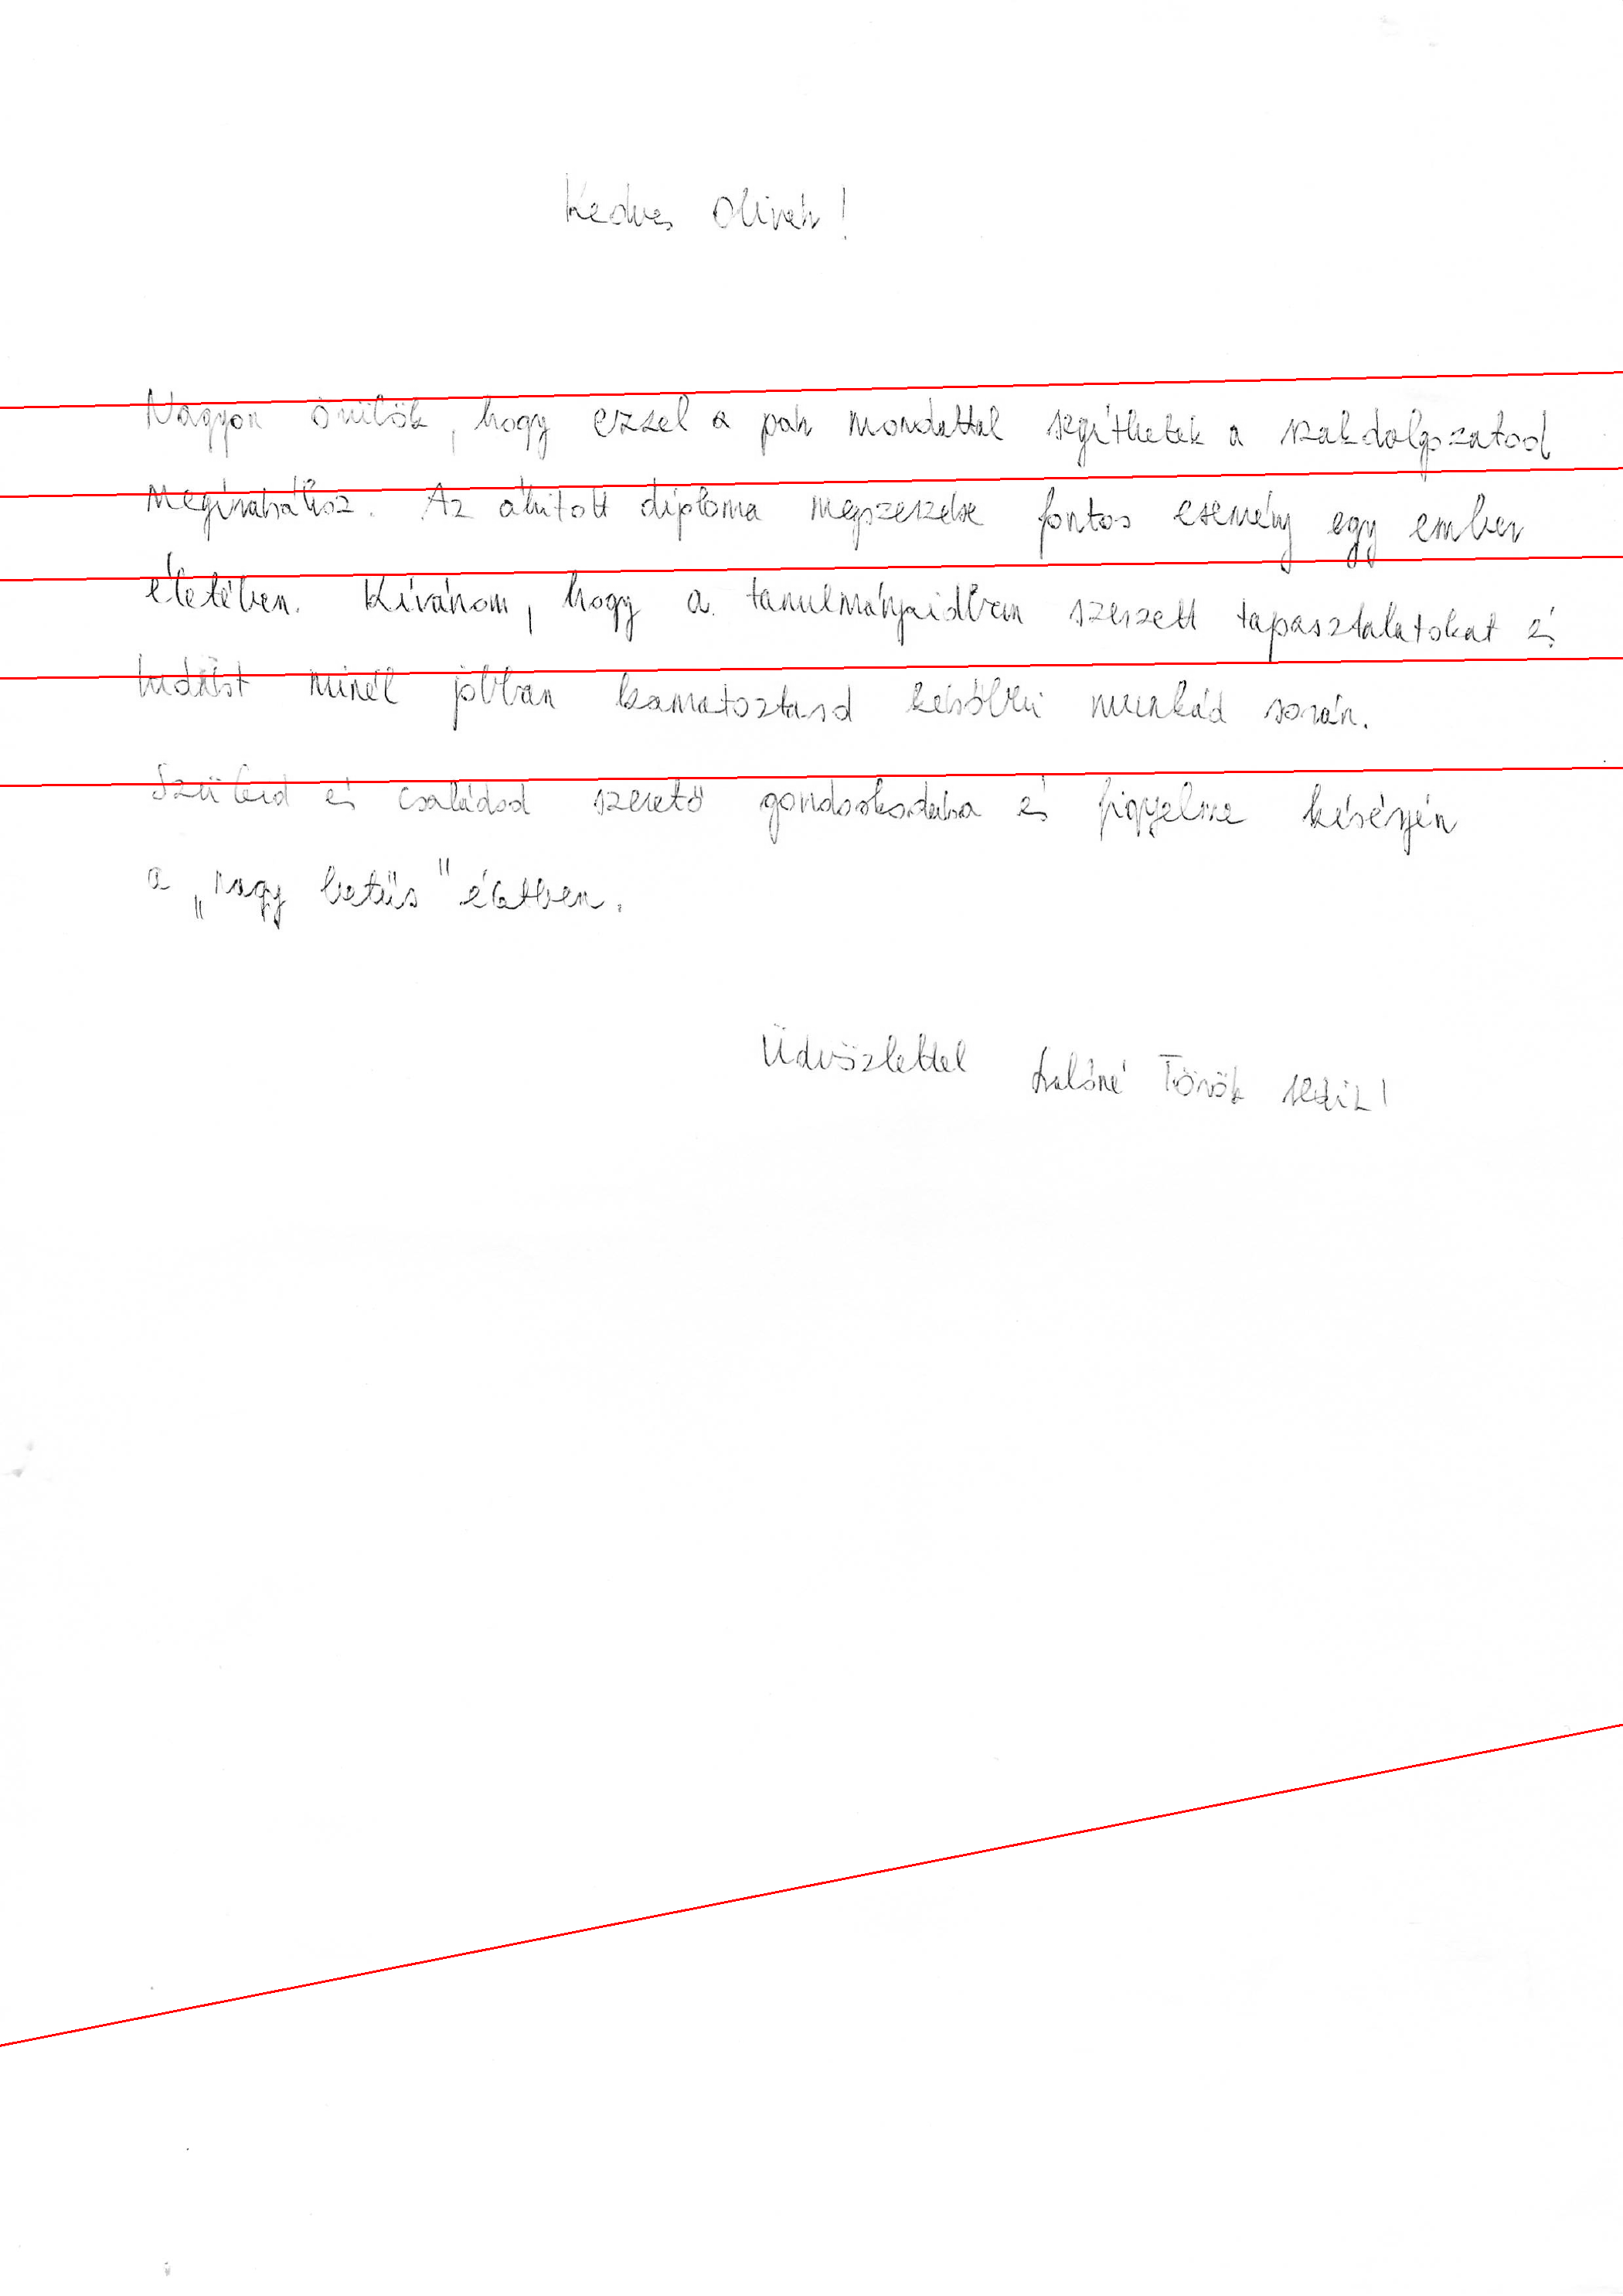 Kedves Olivér!
Nagyon örülök, hogy ezzel a pár mondattal segíthetek a szakdolgozatod
megírásához. Az áhított diploma megszerzése fontos esemény egy ember
életében. Kívánom, hogy a tanulmányaidban szerzett tapasztalatokat és
tudást minél jobban kamatoztasd későbbi munkád során.
Szüleid és családod szerető gondoskodása és figyelme kísérjen
a „nagy betűs" életben.
Üdvözlettel Török